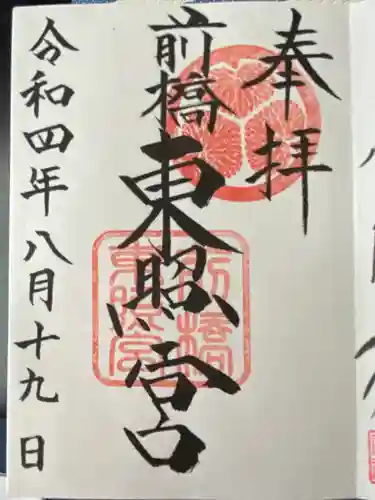 奉拝
前橋
東照宮
令和四年八月十九日
前橋
東照宮